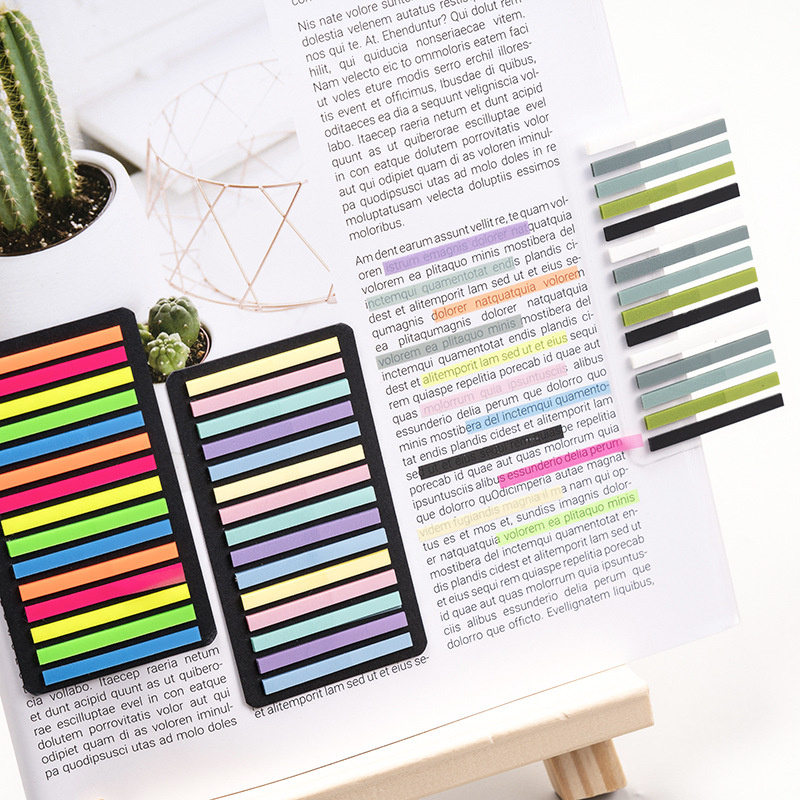 Nis nate volore sunt
dolestia velenem autatus restis
nos qui te. At. Ehenduntur? Qui dolut rem
hilit, qui quiducia nonseriaecae vitem.
Nam velecto eic to ommoloris eatem faci
ut voles eture modis serro erchil illores-
tis event et officimus, Ibusdae di quibus,
oditaeces ea dia a sequunt veligniscia vol-
labo. Itaecep raeria netum et dunt acipid
quunt as ut quiberorae escilluptae evel
in con eatque dolutem porrovitatis volor
aut qui odipiet quam di as voloren iminul-
pa quodipsusci utas ad molo doles in re
moluptatusam velecta doluptiis essimos
moloribus.
Am dent earum assunt vellit re, te quam vol-
oren istrum emagnis dolorer natquatquia
volorem ea plitaquo minis mostibera del
inctemqui quamentotat endis plandis ci-
dest et alitemporit lam sed ut et eius se-
qumagnis dolorer natquatquia volorem
ea plitaqumagnis dolorer natquatquia
volorem ea plitaquo minis mostibera del
inctemqui quamentotat endis plandis ci-
dest et alitemporit lam sed ut et eius sequi
rem quiaspe repelitia porecab id quae aut
quas molorrum quia ipsuntusciis alibus
essunderio delia perum que dolorro quo
minis mostibera del inctemqui quamento-
tat endis plandis cidest et alitemporit lam
sed ut et eius sequi rem quiaspe repelitia
porecab id quae aut quas molorrum quia
ipsuntusciis alibus essunderio delia perum
que dolorro quOdicimperia autae magnat
videm fugiandis magnia il m a nonem qui op-
tus es et mos et, sundiss imagnis dolor-
er natquatquia volorem ea plitaquo minis
mostibera del inctemqui quamentotat en-
dis plandis cidest et alitemporit lam sed ut
et eius sequi rem quiaspe repelitia porecab
id quae aut quas molorrum quia ipsuntus-
ciis alibus essunderio delia perum que
dolorro que officto. Evellignatem liquibus,
cia vollabo. Itaecep raeria netum
et dunt acipid quunt as ut quibero-
rae escilluptae evel in con eatque
dolutem porrovitatis volor aut qui
odipiet quam di as voloren iminul-
pa quodipsusci utas ad molo doles
et alitemporit lam sed ut et eius se-